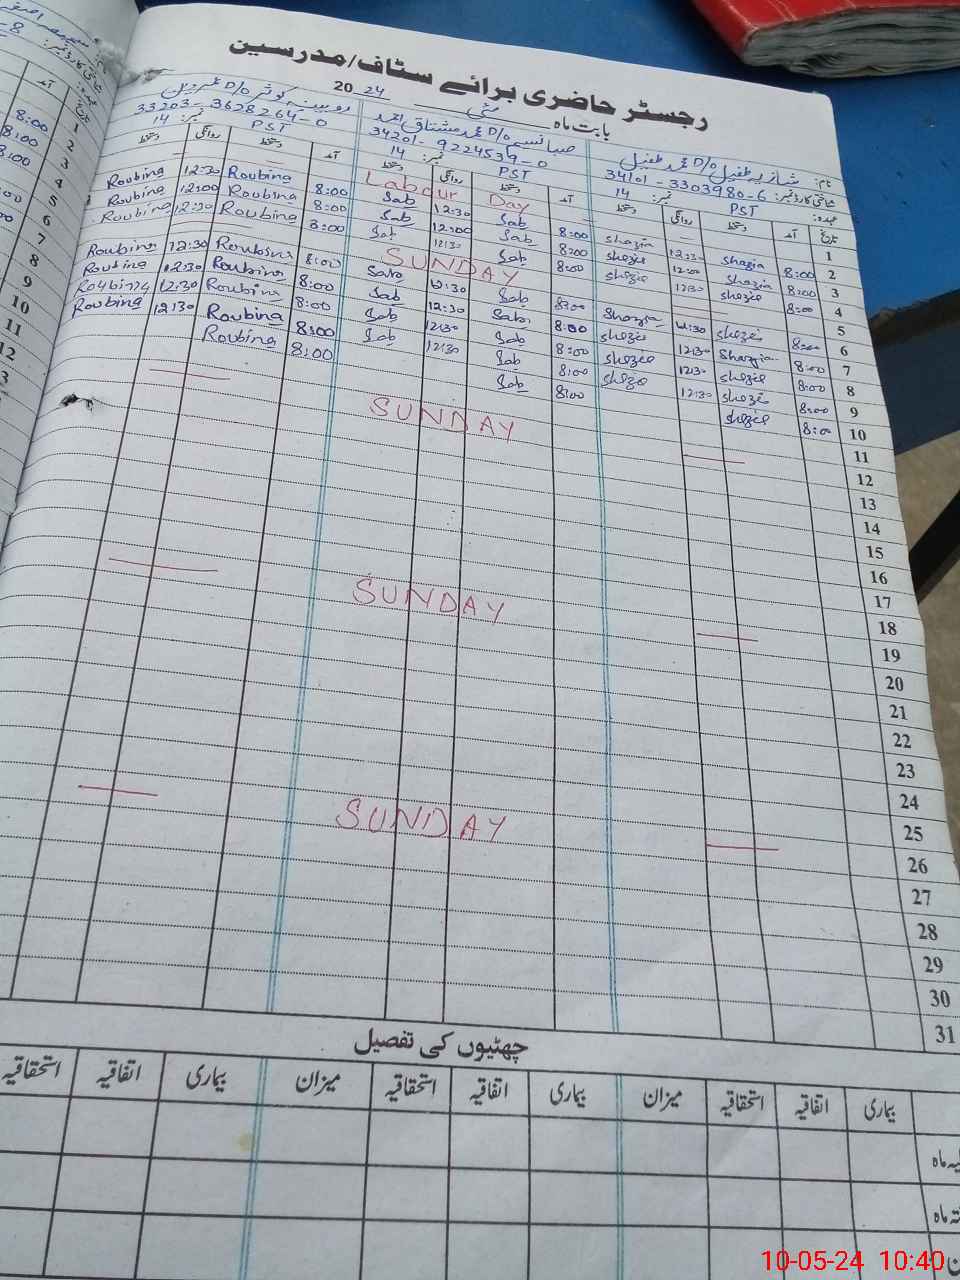 رجسٹر حاضری برائے سٹاف/مدرسین
بابت ماہ مئی 2024
نام: شازیہ طفیل D/o محمد طفیل صبا نسیم D/o محمد مشتاق احمد روبینہ کوثر D/o
شناختی کارڈ نمبر: 34101-3303980-6 34201-9224539-0 33203-3628264-0
عہدہ: PST نمبر: 14 PST نمبر: 14 PST نمبر: 14
تاریخ آمد دستخط روانگی دستخط آمد دستخط روانگی دستخط آمد دستخط روانگی دستخط
1 Labour Day
2 8:00 shazia 12:30 shazia 8:00 Sab 12:30 Sab 8:00 Roubina 12:30 Roubina
3 8:00 Shazia 12:00 shezie 8:00 Sab 12:00 Sab 8:00 Roubina 12:00 Roubina
4 8:00 shezie 12:30 shezie 8:00 Sab 12:30 Sab 8:00 Roubina 12:30 Roubina
5 SUNDAY
6 8:00 shezie 12:30 Shazia 8:00 Sab 12:30 Sab 8:00 Roubina 12:30 Roubina
7 8:00 Shazia 12:30 shezie 8:00 Sab 12:30 Sab 8:00 Roubina 12:30 Roubina
8 8:00 shezie 12:30 shezie 8:00 Sab 12:30 Sab 8:00 Roubina 12:30 Roubina
9 8:00 shezie 12:30 sheze 8:00 Sab 12:30 Sab 8:00 Roubina 12:30 Roubina
10 8:00 shezie 8:00 Sab 8:00 Roubina
11
12 SUNDAY
13
14
15
16
17
18
19 SUNDAY
20
21
22
23
24
25
26 SUNDAY
27
28
29
30
31
چھٹیوں کی تفصیل
بیماری اتفاقیہ استحقاقیہ میزان بیماری اتفاقیہ استحقاقیہ میزان بیماری اتفاقیہ استحقاقیہ
10-05-24 10:40